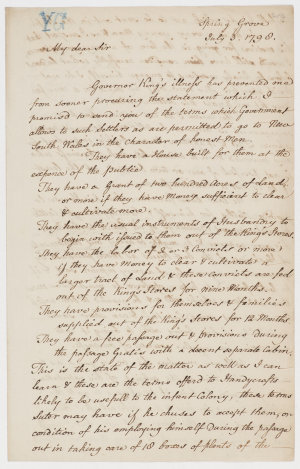 Spring Grove
July 3. 1798.
My dear Sir
Governor King's illness has prevented me
from sooner procuring the statement which I
promised to send you of the terms which Government
allows to such settlers as are permitted to go to New
South Wales in the character of honest Men.
They have a House built for them at the
expence of the Public
They have a Grant of two hundred Acres of Land
or more if they have Money sufficient to clear
& cultivate more.
They have the usual instruments of Husbandry to
begin with issued to them out of the King's Stores.
They have the labor of 2 or 3 Convicts or more
if they have Money to clear & cultivate a
larger tract of Land & these convicts are fed
out of the King's Stores for nine Months.
They have provisions for themselves & families
supplied out of the King's Stores for 12 Months
They have a free passage out & provisions During
the passage Gratis with a decent separate Cabin.
This is the state of the matter as well as I can
learn & these are the terms offerd to Handycrafts
likely to be usefull to the infant Colony, these terms
Suter may have if he chuses to accept them, on
condition of his employing himself During the passage
out in taking care of 18 boxes of plants of the